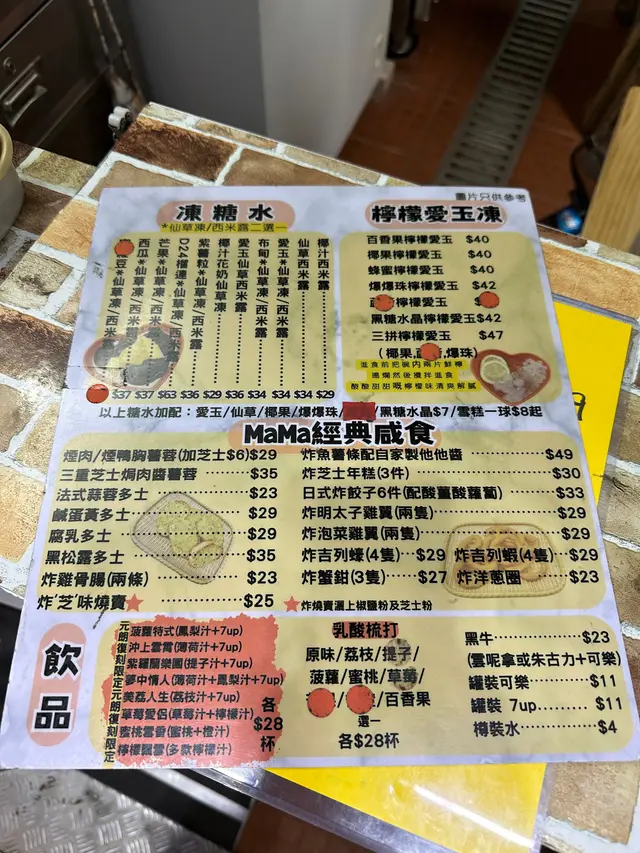 圖片只供參考
凍糖水
*仙草凍/西米露二選一
椰汁西米露 $29
仙草西米露 $34
愛玉*仙草凍/西米露 $34
布甸*仙草凍/西米露 $34
愛玉仙草凍西米露 $36
椰汁花奶仙草凍 $29
紫薯粒*仙草凍/西米露 $36
D24榴槤*仙草凍/西米露 $63
芒果*仙草凍/西米露 $37
西瓜*仙草凍/西米露 $37
豆*仙草凍/西米
以上糖水加配：愛玉/仙草/椰果/爆爆珠/ /黑糖水晶$7/雪糕一球$8起
檸檬愛玉凍
百香果檸檬愛玉 $40
椰果檸檬愛玉 $40
蜂蜜檸檬愛玉 $40
爆爆珠檸檬愛玉 $42
檸檬愛玉
黑糖水晶檸檬愛玉$42
三拼檸檬愛玉 $47
(椰果, ,爆珠)
進食前把碗内兩片鮮檸
搗爛然後攪拌進食
酸酸甜甜嘅檸檬味清爽解膩
MaMa經典咸食
煙肉/煙鴨胸薯蓉(加芝士$6)$29
三重芝士焗肉醬薯蓉 $35
法式蒜蓉多士 $29
鹹蛋黃多士 $29
腐乳多士 $29
黑松露多士 $35
炸雞骨腸(兩條) $23
炸'芝'味燒賣★ $25
炸魚薯條配自家製他他醬 $49
炸芝士年糕(3件) $30
日式炸餃子6件(配酸薑酸蘿蔔) $33
炸明太子雞翼(兩隻) $29
炸泡菜雞翼(兩隻) $29
炸吉列蠔(4隻) $29 炸吉列蝦(4隻) $29
炸蟹鉗(3隻) $27 炸洋蔥圈 $23
★炸燒賣灑上椒鹽粉及芝士粉
飲品
元朗復刻限定元朗復刻限定
菠蘿特式(鳳梨汁+7up)
沖上雲霄(薄荷汁+7up)
紫羅蘭樂園(提子汁+7up)
夢中情人(薄荷汁+鳳梨汁+7up)
美荔人生(荔枝汁+7up)
草莓愛侶(草莓汁+檸檬汁)
蜜桃雲香(蜜桃+橙汁)
檸檬飄雲(多款檸檬汁)
各$28杯
乳酸梳打
原味/荔枝/提子/
菠蘿/蜜桃/草莓/
/ /百香果
選一
各$28杯
黑牛 $23
(雲呢拿或朱古力+可樂)
罐裝可樂 $11
罐裝 7up $11
樽裝水 $4